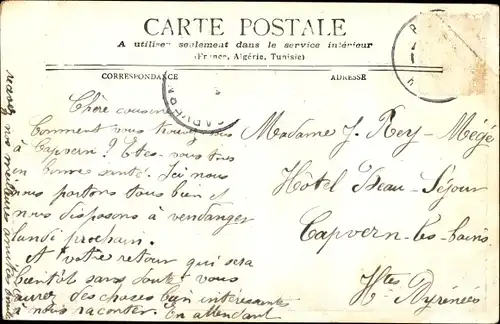 CARTE POSTALE
A utiliser seulement dans le service intérieur
(France, Algérie, Tunisie)
CORRESPONDANCE
ADRESSE
Chère cousine
Comment vous trouvez vous
à Capvern ? Êtes-vous tous
en bonne santé. Ici nous
nous portons tous bien et
nous disposons à vendanger
lundi prochain.
A votre retour qui sera
bientôt sans doute vous
aurez des choses bien intéressantes
à nous raconter. En attendant
nos meilleures amitiés
Madame J. Rey-Mégé
Hôtel Beau-Séjour
Capvern-les-bains
Htes Pyrénées
CAPVERN